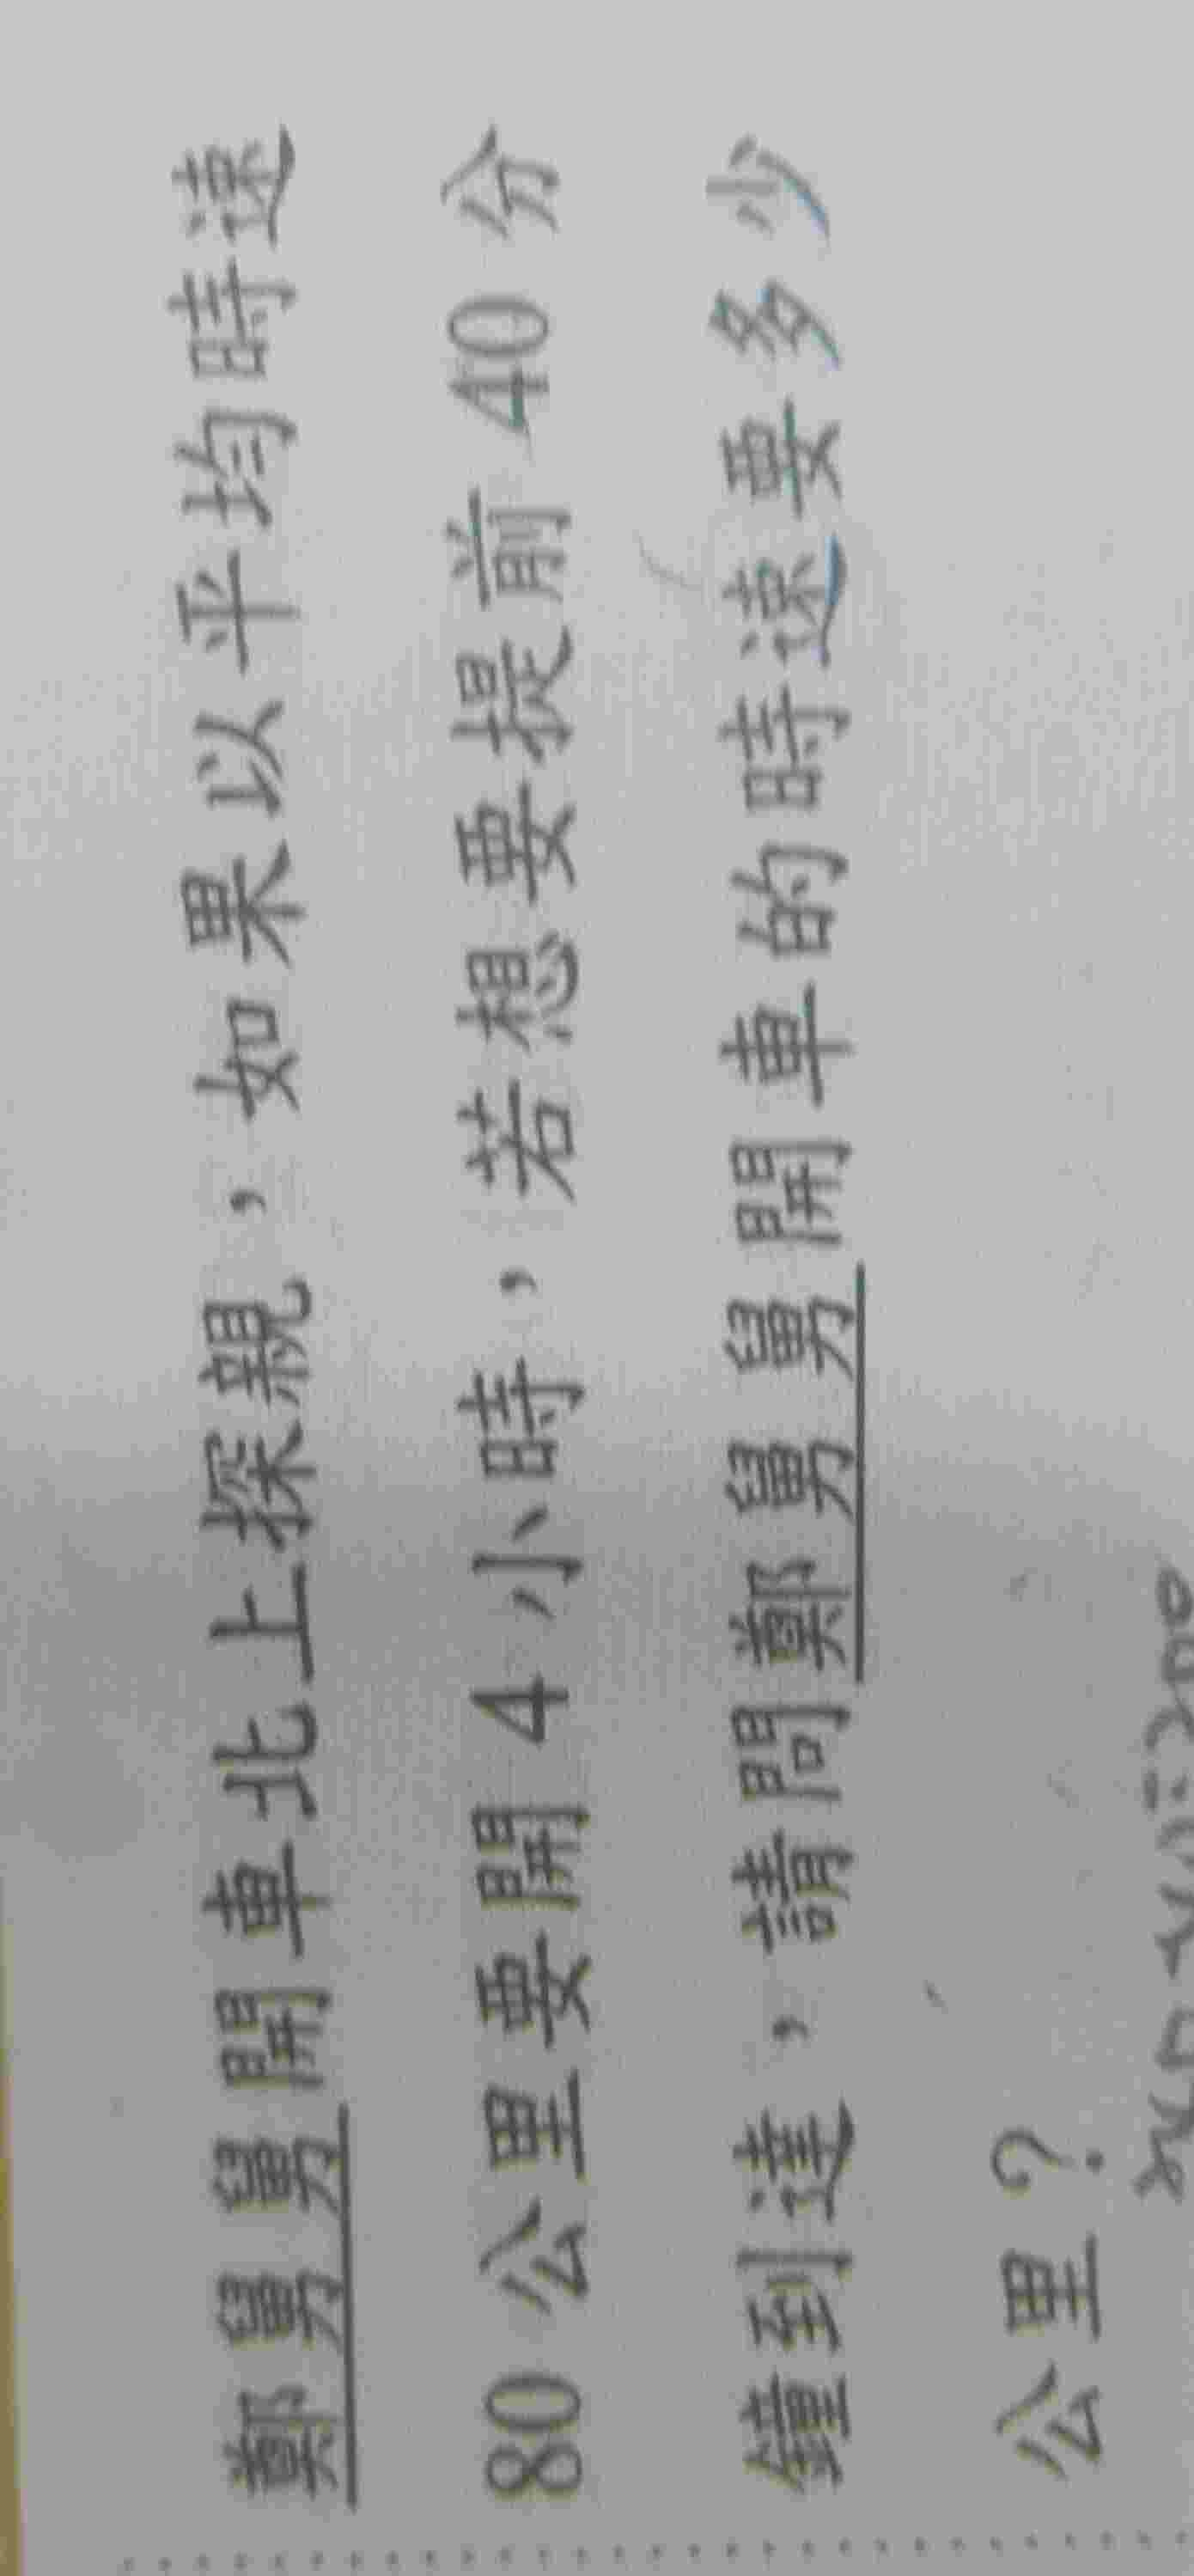 鄭舅舅開車北上探親，如果以平均時速
80公里要開4小時，若想要提前40分
鐘到達，請問鄭舅舅開車的時速要多少
公里？